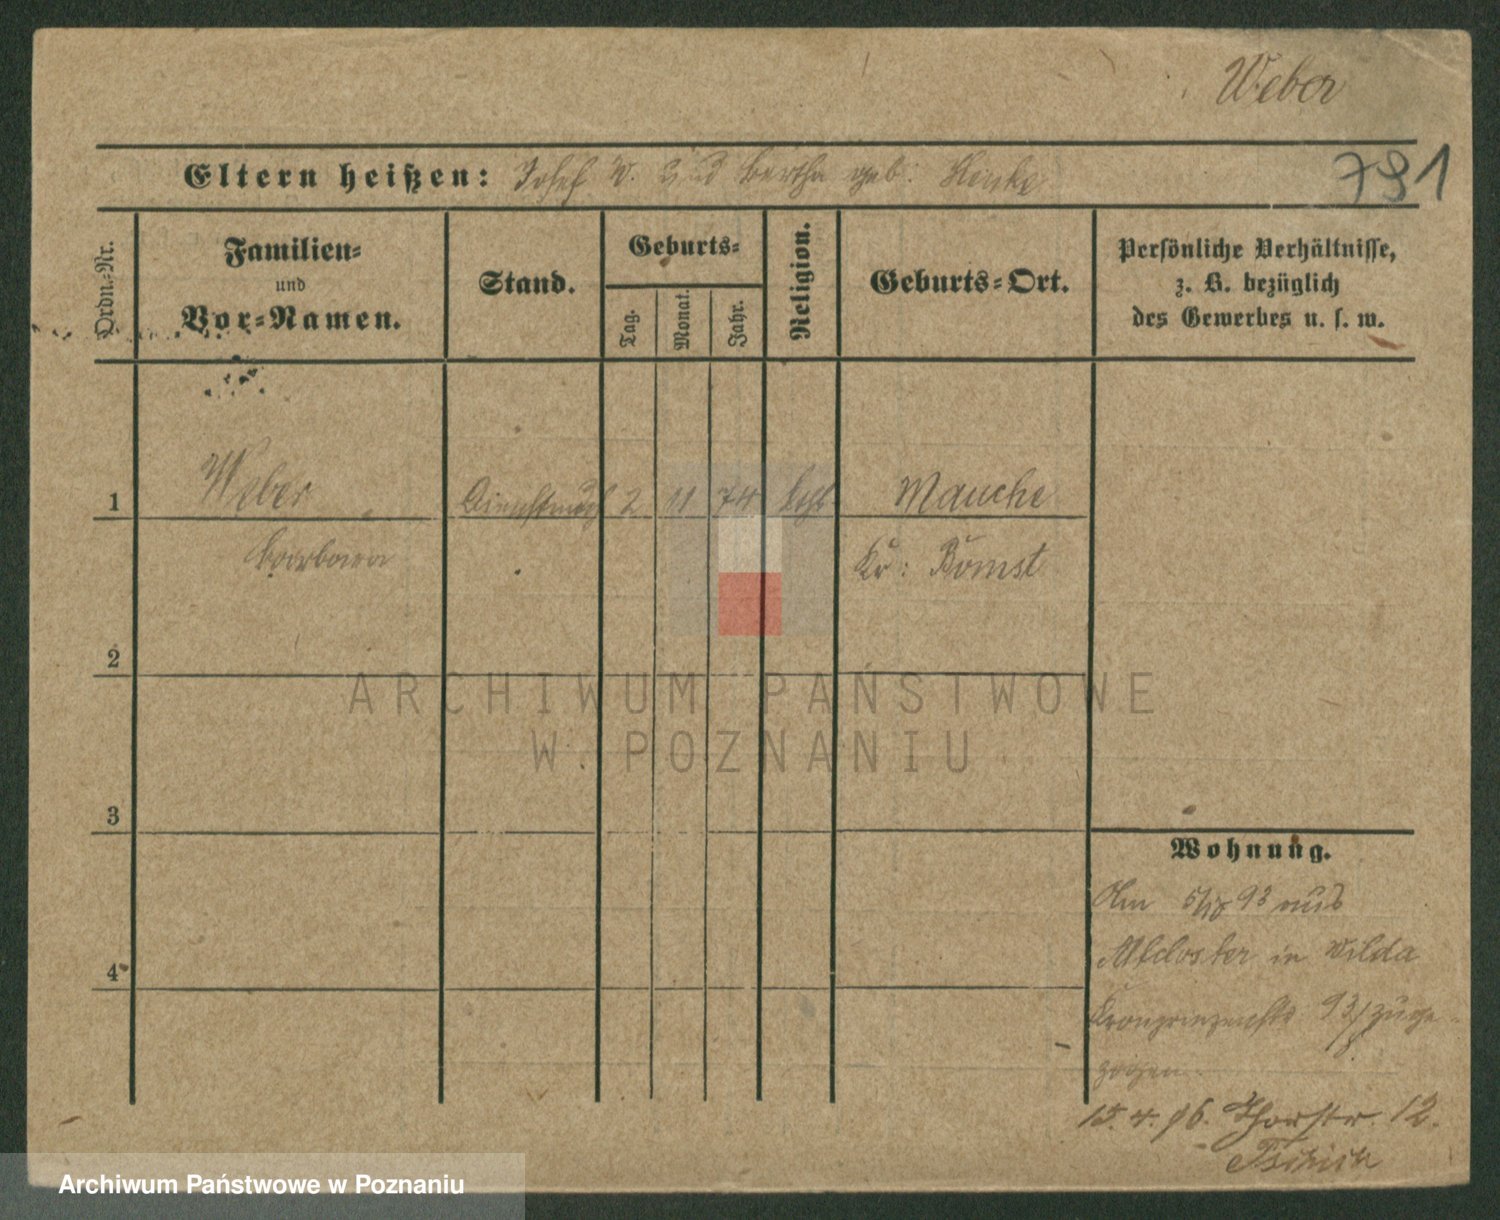 Weber
Eltern heißen: Josef W. und Bertha geb: Henke
791
Ordn.-Nr.
Familien-
und
Vor-Namen.
Stand.
Geburts-
Tag.
Monat.
Jahr.
Religion.
Geburts-Ort.
Persönliche Verhältnisse,
z. B. bezüglich
des Gewerbes u. s. w.
1
Weber
2 11 74
kath
Mauche
Barbara
Kr: Bomst
2
3
4
Wohnung.
Am 93 aus
Altkloster in Wilda
Kronprinzenstr 93 zuge-
zogen.
15.4.96. Thorstr. 12.
ARCHIWUM PAŃSTWOWE
W POZNANIU
Archiwum Państwowe w Poznaniu